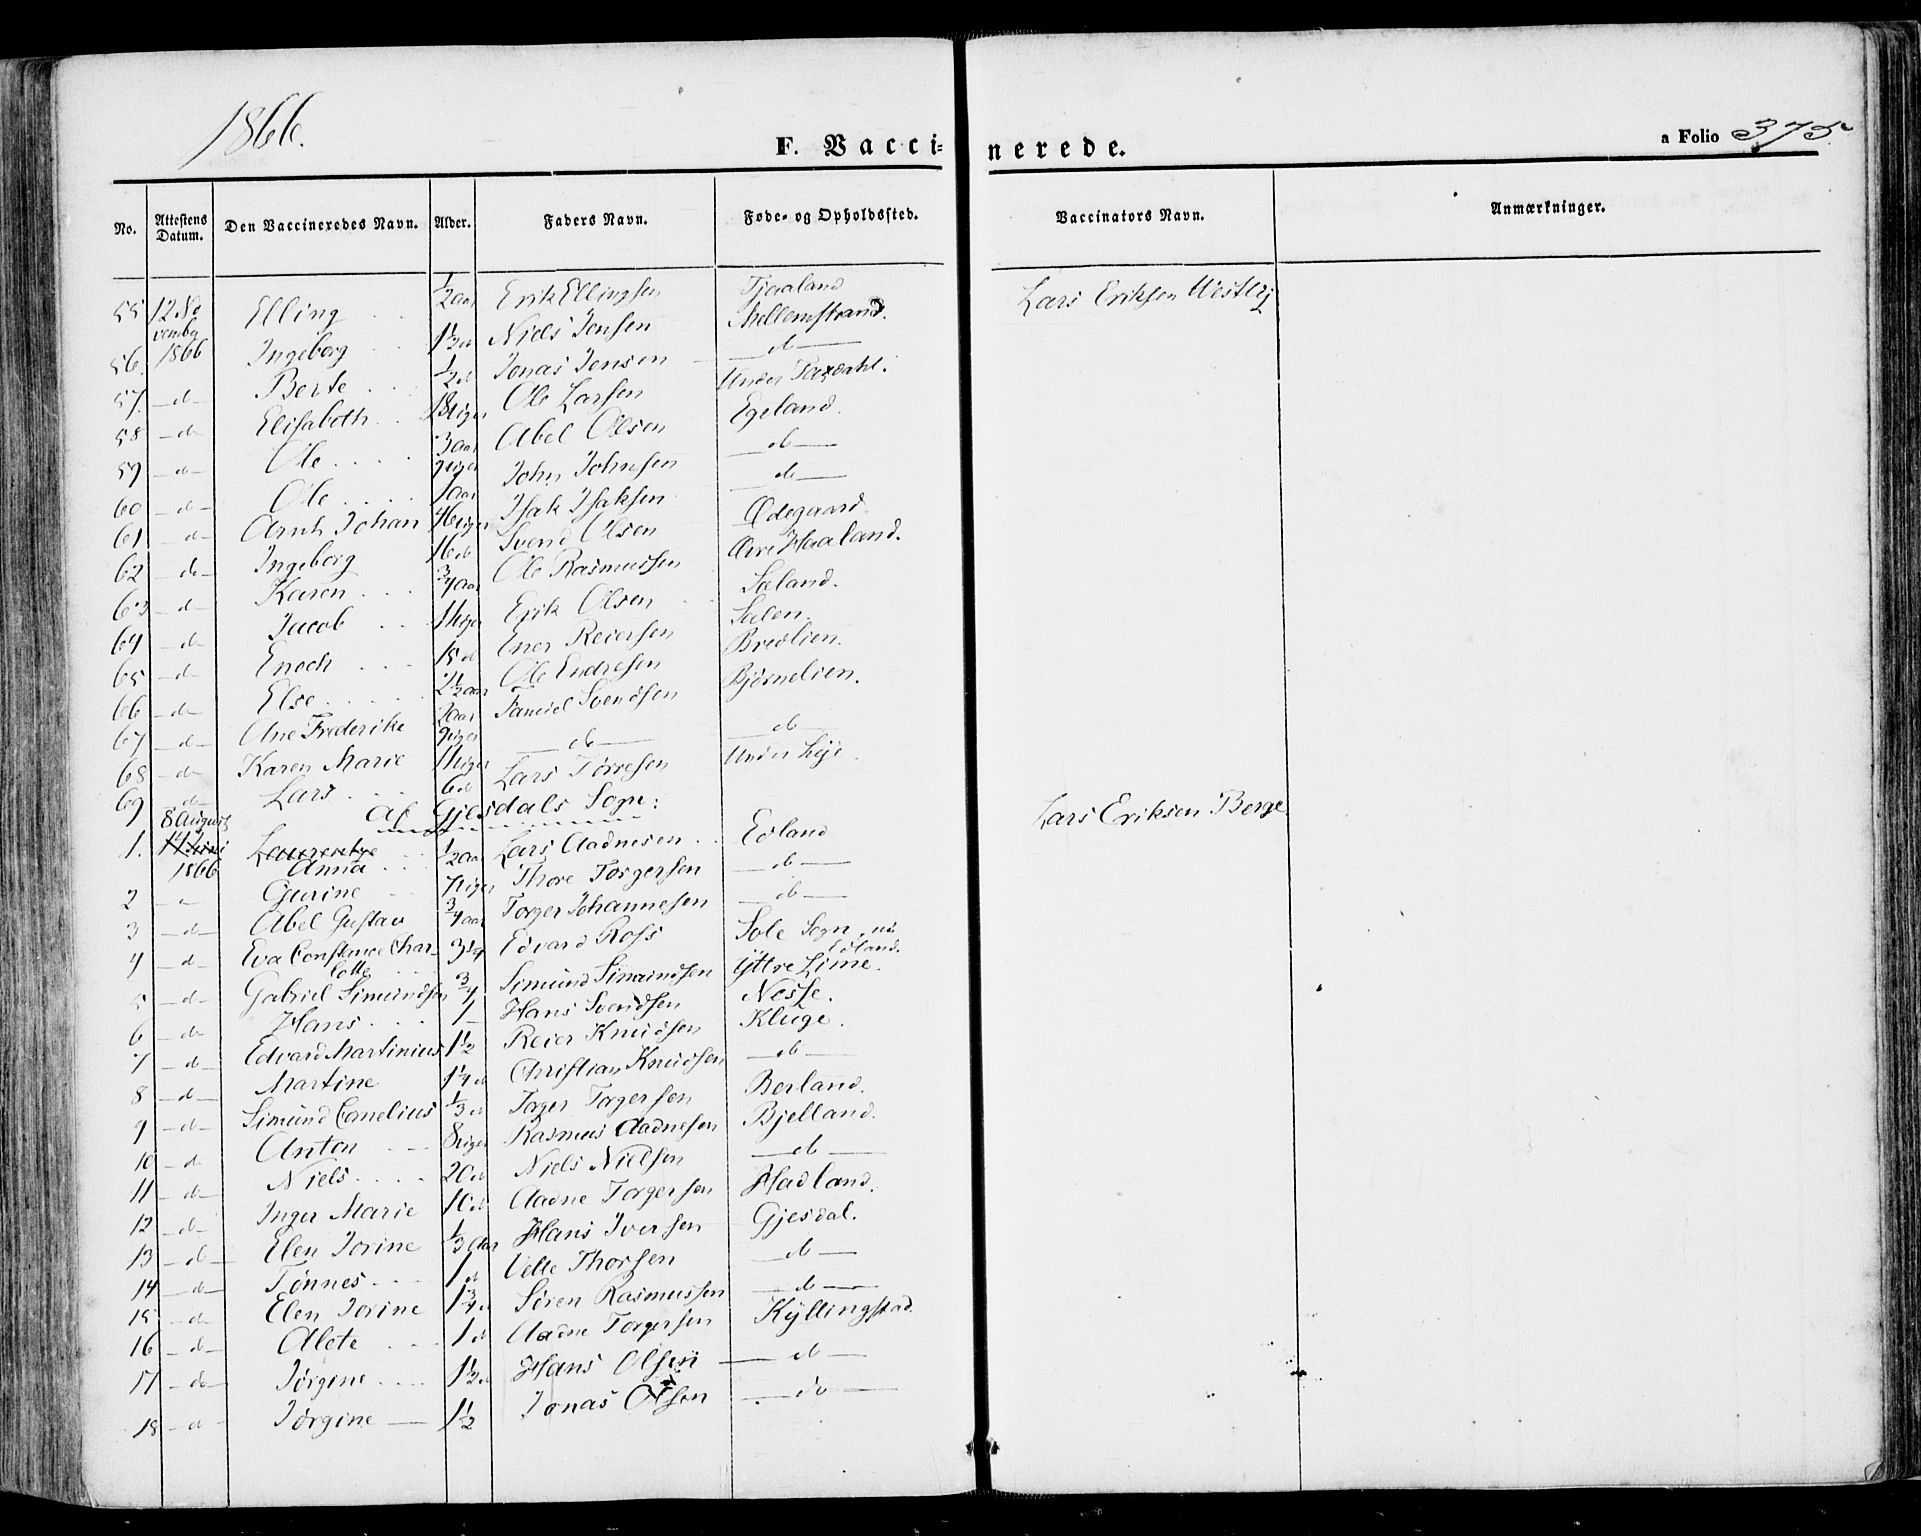 1866.
F. Vaccinerede.
a Folio 375
No. Attestens Datum. Den Vaccineredes Navn. Alder. Faders Navn. Føde- og Opholdssted. Vaccinators Navn. Anmærkninger.
55 12 No Elling 1/2 aar Erik Ellingsen Tjaaland Lars Eriksen Westly
vembr
56. 1866 Ingeborg 1 1/2 d Niels Jensen Mellemstrand.
57. - d - Berte 1/2 d Jonas Jensen - d -
58 - d - Elisabeth 18 Uger Ole Larsen Under Taxdahl.
59 - d - Ole 3 aar Abel Olsen Egeland.
60 - d - Ole John Johnsen - d -
61 - d - Arnt Johan Isak Isaksen - d -
62 - do - Ingeborg 16 d Svend Olsen Ødegaard.
63 - d - Karen 3/4 aar Ole Rasmussen Øvre Haaland.
64 - d - Jacob 11 Uger Erik Olsen Sæland.
65 - d - Enoch 15 d Ener Reiersen Salen.
66 - d - Else 2 1/2 aar Ole Endresen Bredlien.
67 - d - Ane Frederike Samuel Svendsen Bjørnelien.
68 - do - Karen Marie 11 Uger - do - - do -
69 - do - Lars 6 d Lars Tørresen Under Lye.
Af Gjesdals Sogn:
8 August
1. 14 Juni Laurentze 1/2 aar Lars Aadnesen Edland Lars Eriksen Berge
1866 Anna
2 Gurine 7 Uger Thore Torgersen - do -
3 - d - Abel Gustav 3/4 aar Torger Johannesen - do -
4 - d - Eva Constance Char- 3 1/4 Edvard Ross Sole Sogn, nu
lotte Edland.
5 - d - Gabriel Simundsen 3/4 Simund Simundsen Yttre Lime.
6 - do - Hans 1 - Hans Svendsen Nesse.
7 - d - Edvard Martinius 1 1/2 Reier Knudsen Kluge.
8 - d - Martine 1 1/4 d Christian Knudsen - do -
9 - d - Simund Cornelius 1/3 d Torger Torgersen Berland.
10 - d Anton 8 Uger Rasmus Aadnesen Bjelland.
11 - do - Niels 20 d Niels Nielsen - do -
12 - do - Inger Marie 10 d Aadne Torgersen Hadland.
13 - d - Elen Jorine 1/3 Aar Hans Iversen Gjesdal.
14 - do - Tønnes 1 d Velle Thorsen - do -
15 - do Elen Jorine 1 3/4 d Søren Rasmussen - do -
16 - do - Alete 1 d Aadne Torgersen Kyllingstad.
17 - do - Jørgine 1 1/2 d Hans Olsen - do -
18 - d Jørgine 1 1/2 Jonas Olsen - do -